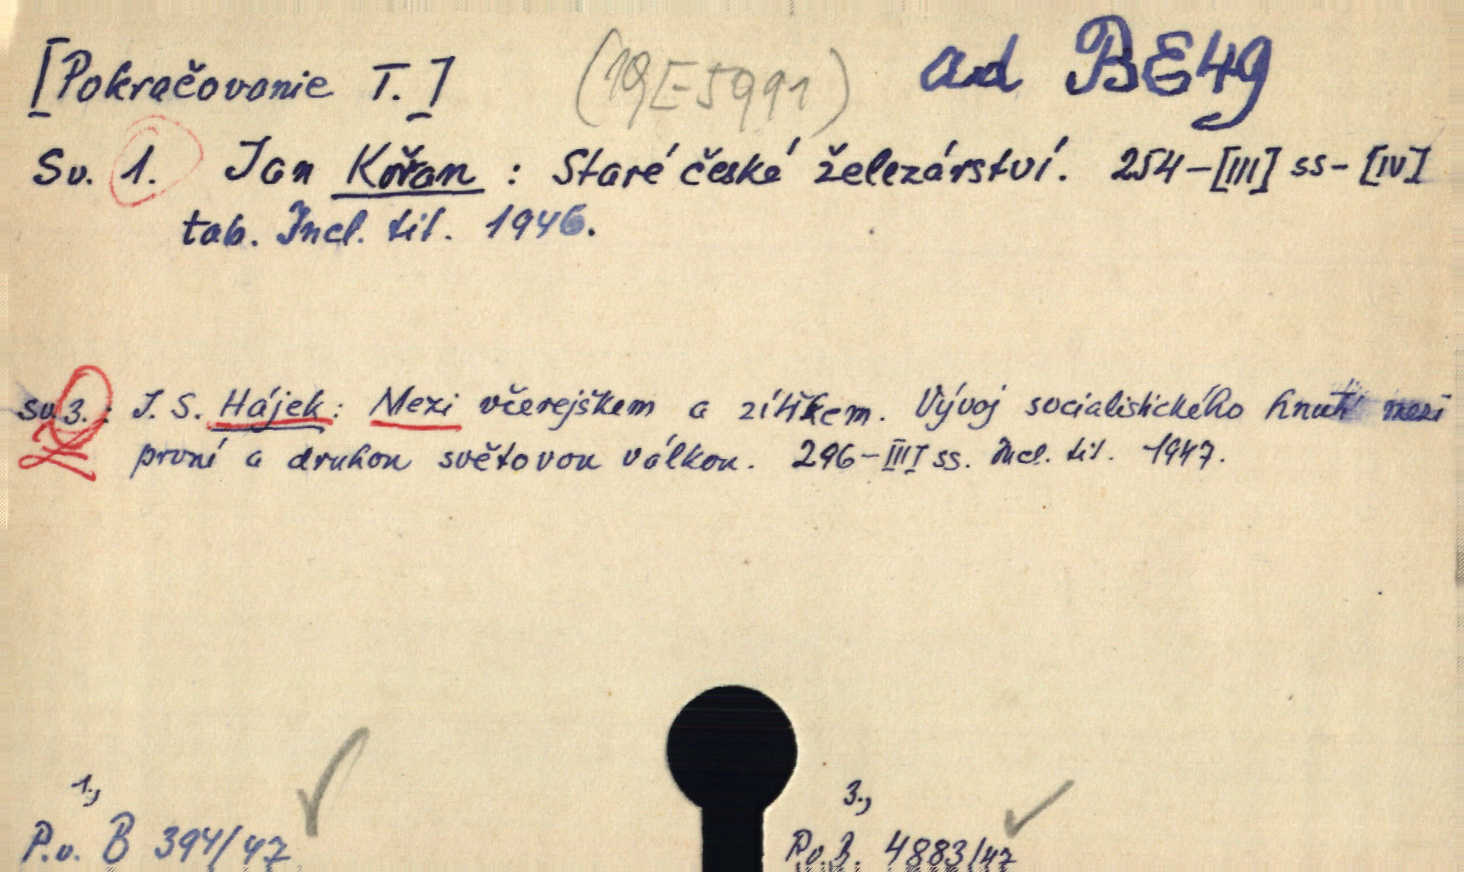 [Pokračovanie T.] (19E5991) ad BE49
Sv. 1. Jan Kořan : Staré české železárství. 254-[III] ss- [IV]
tab. Incl. tit. 1946.
sv. 3. : J. S. Hájek: Mezi včerejškem a zítřkem. Vývoj socialistického hnutí mezi
první a druhou světovou válkou. 296-III ss. Incl. tit. 1947.
1., 3.,
P.v. B 394/47 P.v.B. 4883/47